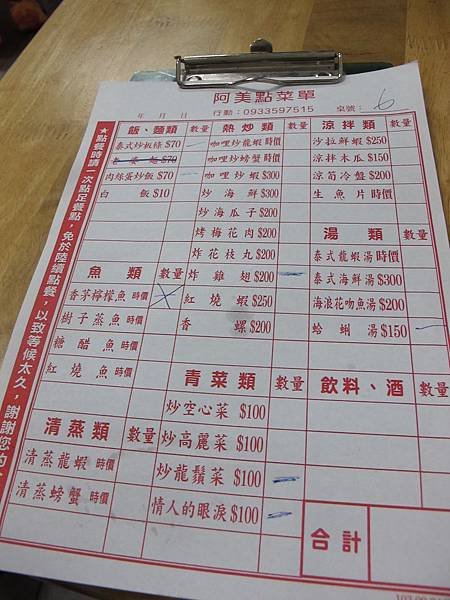 阿美點菜單
年 月 日 行動：0933597515 桌號： 6
★點餐時請一次點足餐點，免於陸續點餐，以致等候太久，謝謝您的
飯、麵類 數量
泰式炒板條 $70
麵 $70
肉絲蛋炒飯 $70
白飯 $10
魚類 數量
香茅檸檬魚 時價
樹子蒸魚 時價
糖醋魚 時價
紅燒魚 時價
清蒸類 數量
清蒸龍蝦 時價
清蒸螃蟹 時價
熱炒類 數量
咖哩炒龍蝦 時價
咖哩炒螃蟹 時價
咖哩炒蝦 $300
炒海鮮 $300
炒海瓜子 $200
烤梅花肉 $200
炸花枝丸 $200
炸雞翅 $200
紅燒蝦 $250
香螺 $200
青菜類 數量
炒空心菜 $100
炒高麗菜 $100
炒龍鬚菜 $100
情人的眼淚 $100
涼拌類 數量
沙拉鮮蝦 $250
涼拌木瓜 $150
涼筍冷盤 $200
生魚片 時價
湯類 數量
泰式龍蝦湯 時價
泰式海鮮湯 $300
海浪花吻魚湯 $200
蛤蜊湯 $150
飲料、酒 數量
合計